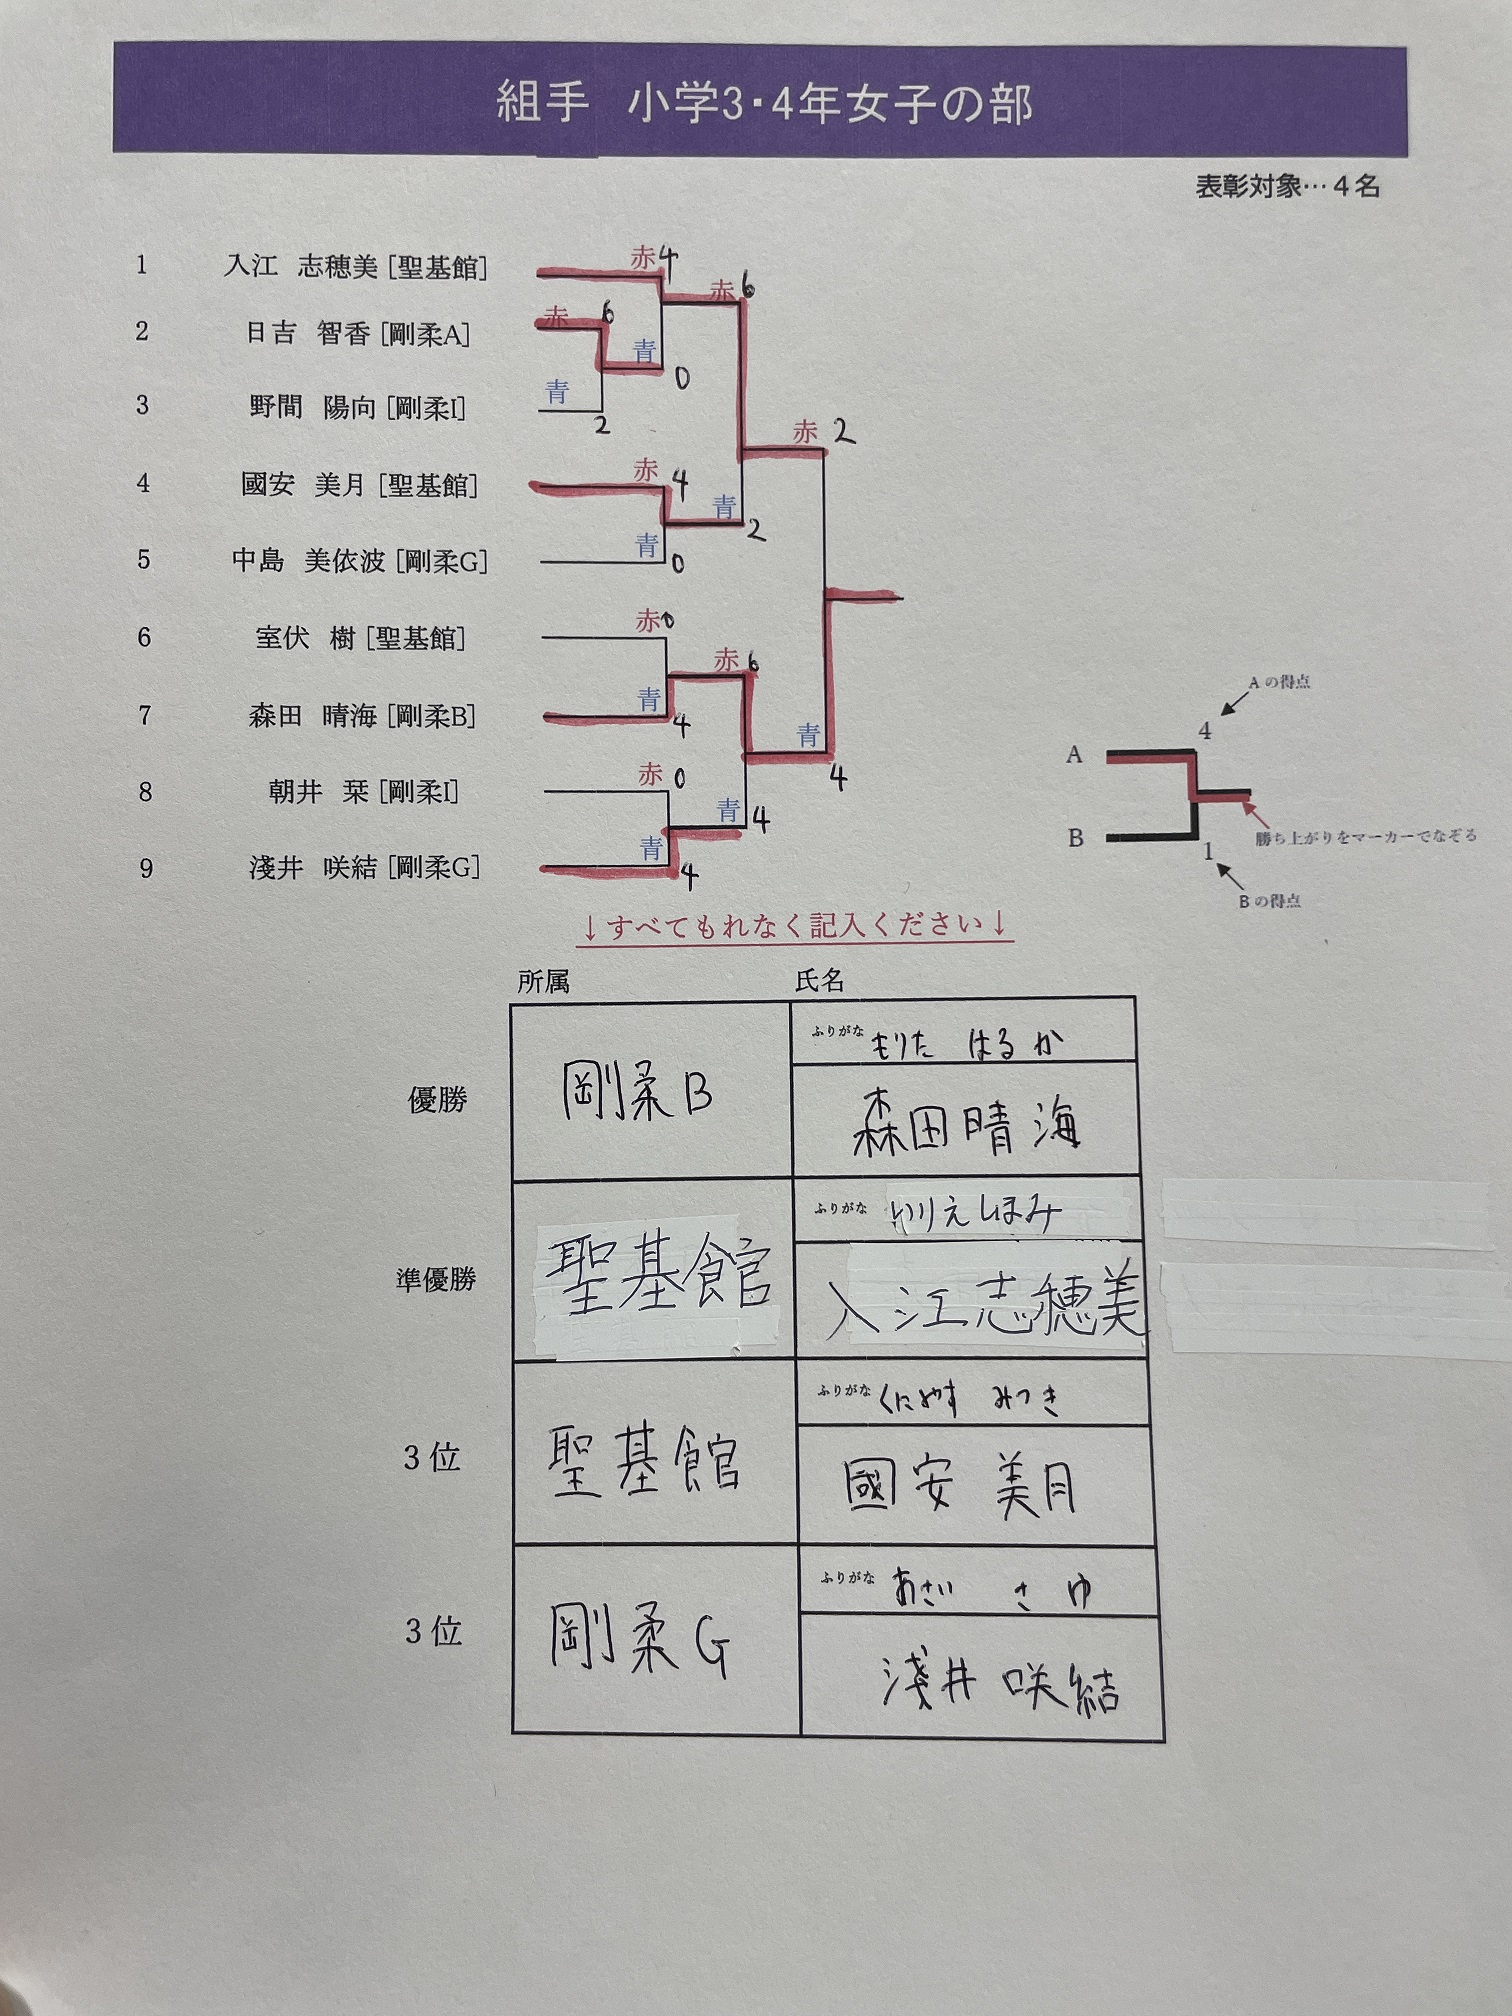 組手　小学3・4年女子の部
表彰対象…４名
1 入江　志穂美 [聖基館] 赤 4
赤 6
2 日吉　智香 [剛柔A] 赤 6
青 0
3 野間　陽向 [剛柔I] 青 2
赤 2
4 國安　美月 [聖基館] 赤 4
青 2
5 中島　美依波 [剛柔G] 青 0
6 室伏　樹 [聖基館] 赤 0
赤 6
7 森田　晴海 [剛柔B] 青 4
青 4
8 朝井　栞 [剛柔I] 赤 0
青 4
9 淺井　咲結 [剛柔G] 青 4
Aの得点
4
A
勝ち上がりをマーカーでなぞる
B
1
Bの得点
↓すべてもれなく記入ください↓
所属 氏名
優勝 剛柔B
ふりがな もりた はるか
森田晴海
準優勝 聖基館
ふりがな いりえ しほみ
入江志穂美
3位 聖基館
ふりがな くにやす みつき
國安 美月
3位 剛柔G
ふりがな あさい さゆ
淺井 咲結